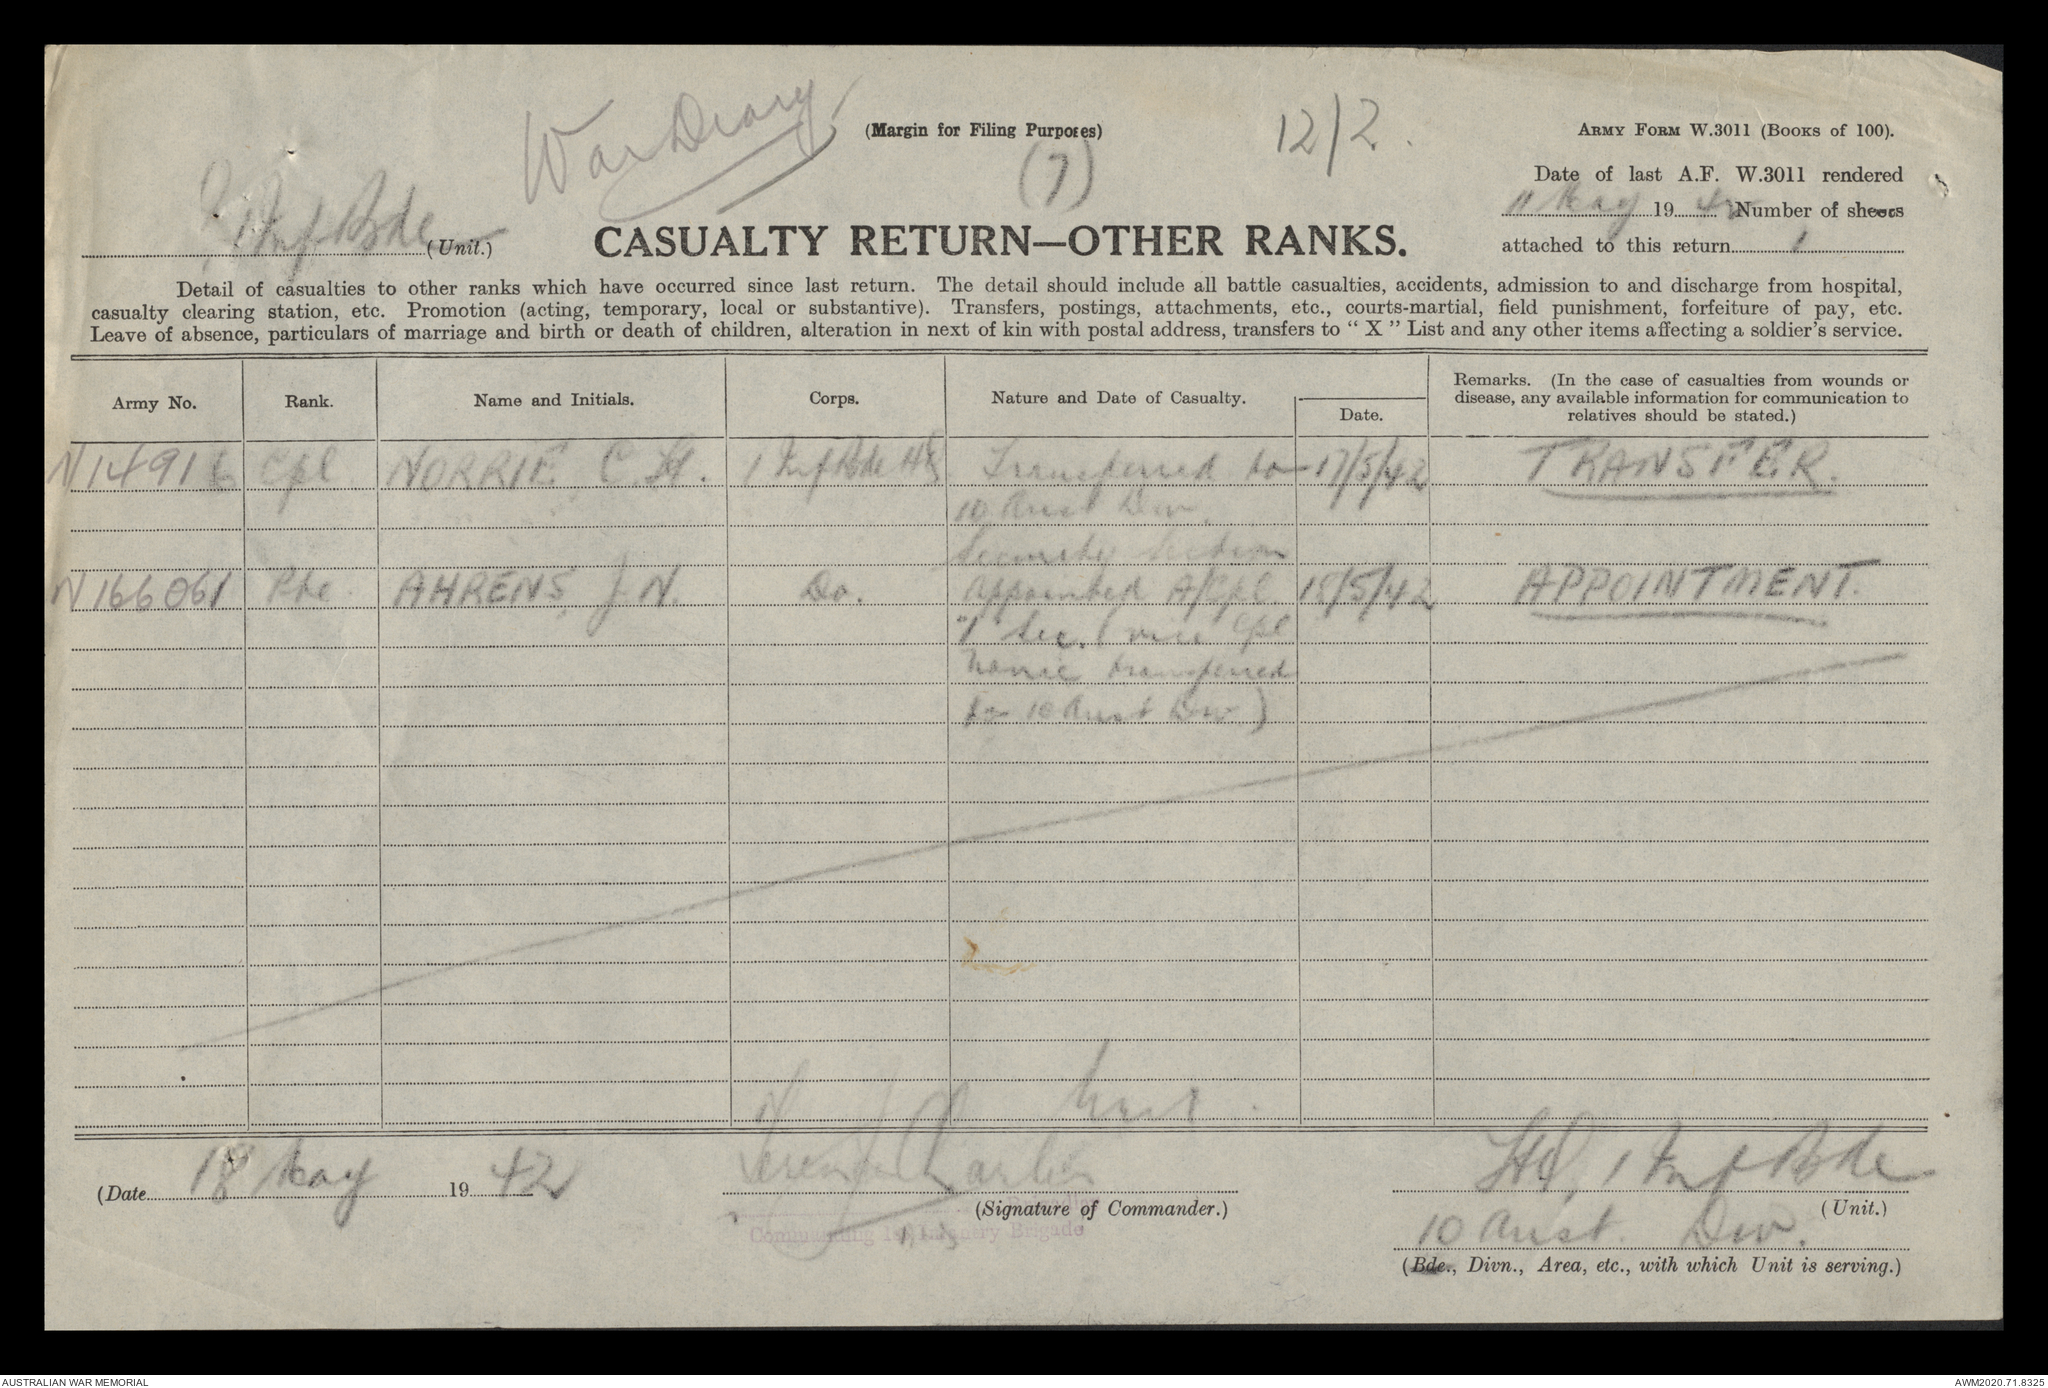 War Diary
(Margin for Filing Purposes)
(7)
12/2.
ARMY FORM W.3011 (Books of 100).
Date of last A.F. W.3011 rendered
11 May 1942 Number of sheets
attached to this return 1
1 Inf Bde (Unit.)
CASUALTY RETURN—OTHER RANKS.
Detail of casualties to other ranks which have occurred since last return. The detail should include all battle casualties, accidents, admission to and discharge from hospital,
casualty clearing station, etc. Promotion (acting, temporary, local or substantive). Transfers, postings, attachments, etc., courts-martial, field punishment, forfeiture of pay, etc.
Leave of absence, particulars of marriage and birth or death of children, alteration in next of kin with postal address, transfers to “ X ” List and any other items affecting a soldier’s service.
Army No. Rank. Name and Initials. Corps. Nature and Date of Casualty. Date. Remarks. (In the case of casualties from wounds or
disease, any available information for communication to
relatives should be stated.)
N14916 Cpl NORRIE, C.H. 1 Inf Bde HQ Transferred to 17/5/42 TRANSFER.
10 Aust Div.
Security Section
N166061 Pte. AHRENS, J.N. Do. Appointed A/Cpl. 18/5/42 APPOINTMENT.
"I" Sec. (vice Cpl
Norrie transferred
to 10 Aust Div)
(Date 18 May 1942
(Signature of Commander.)
Brigadier
Commanding 1st Infantry Brigade
HQ, 1 Inf Bde
(Unit.)
10 Aust. Div.
(Bde., Divn., Area, etc., with which Unit is serving.)
AUSTRALIAN WAR MEMORIAL
AWM2020.71.8325